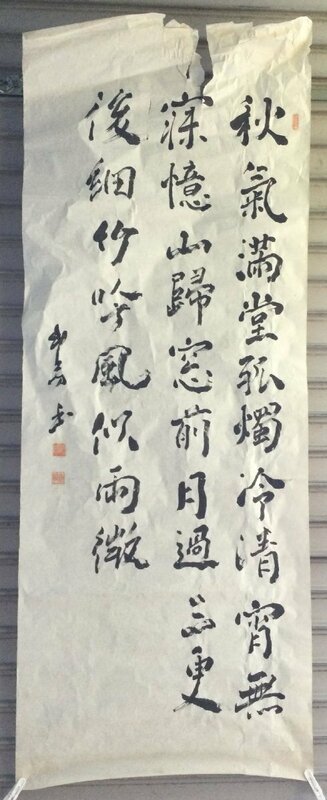 秋氣滿堂孤燭冷清宵無
寐憶山歸窓前月過三更
後細竹吟風似雨微